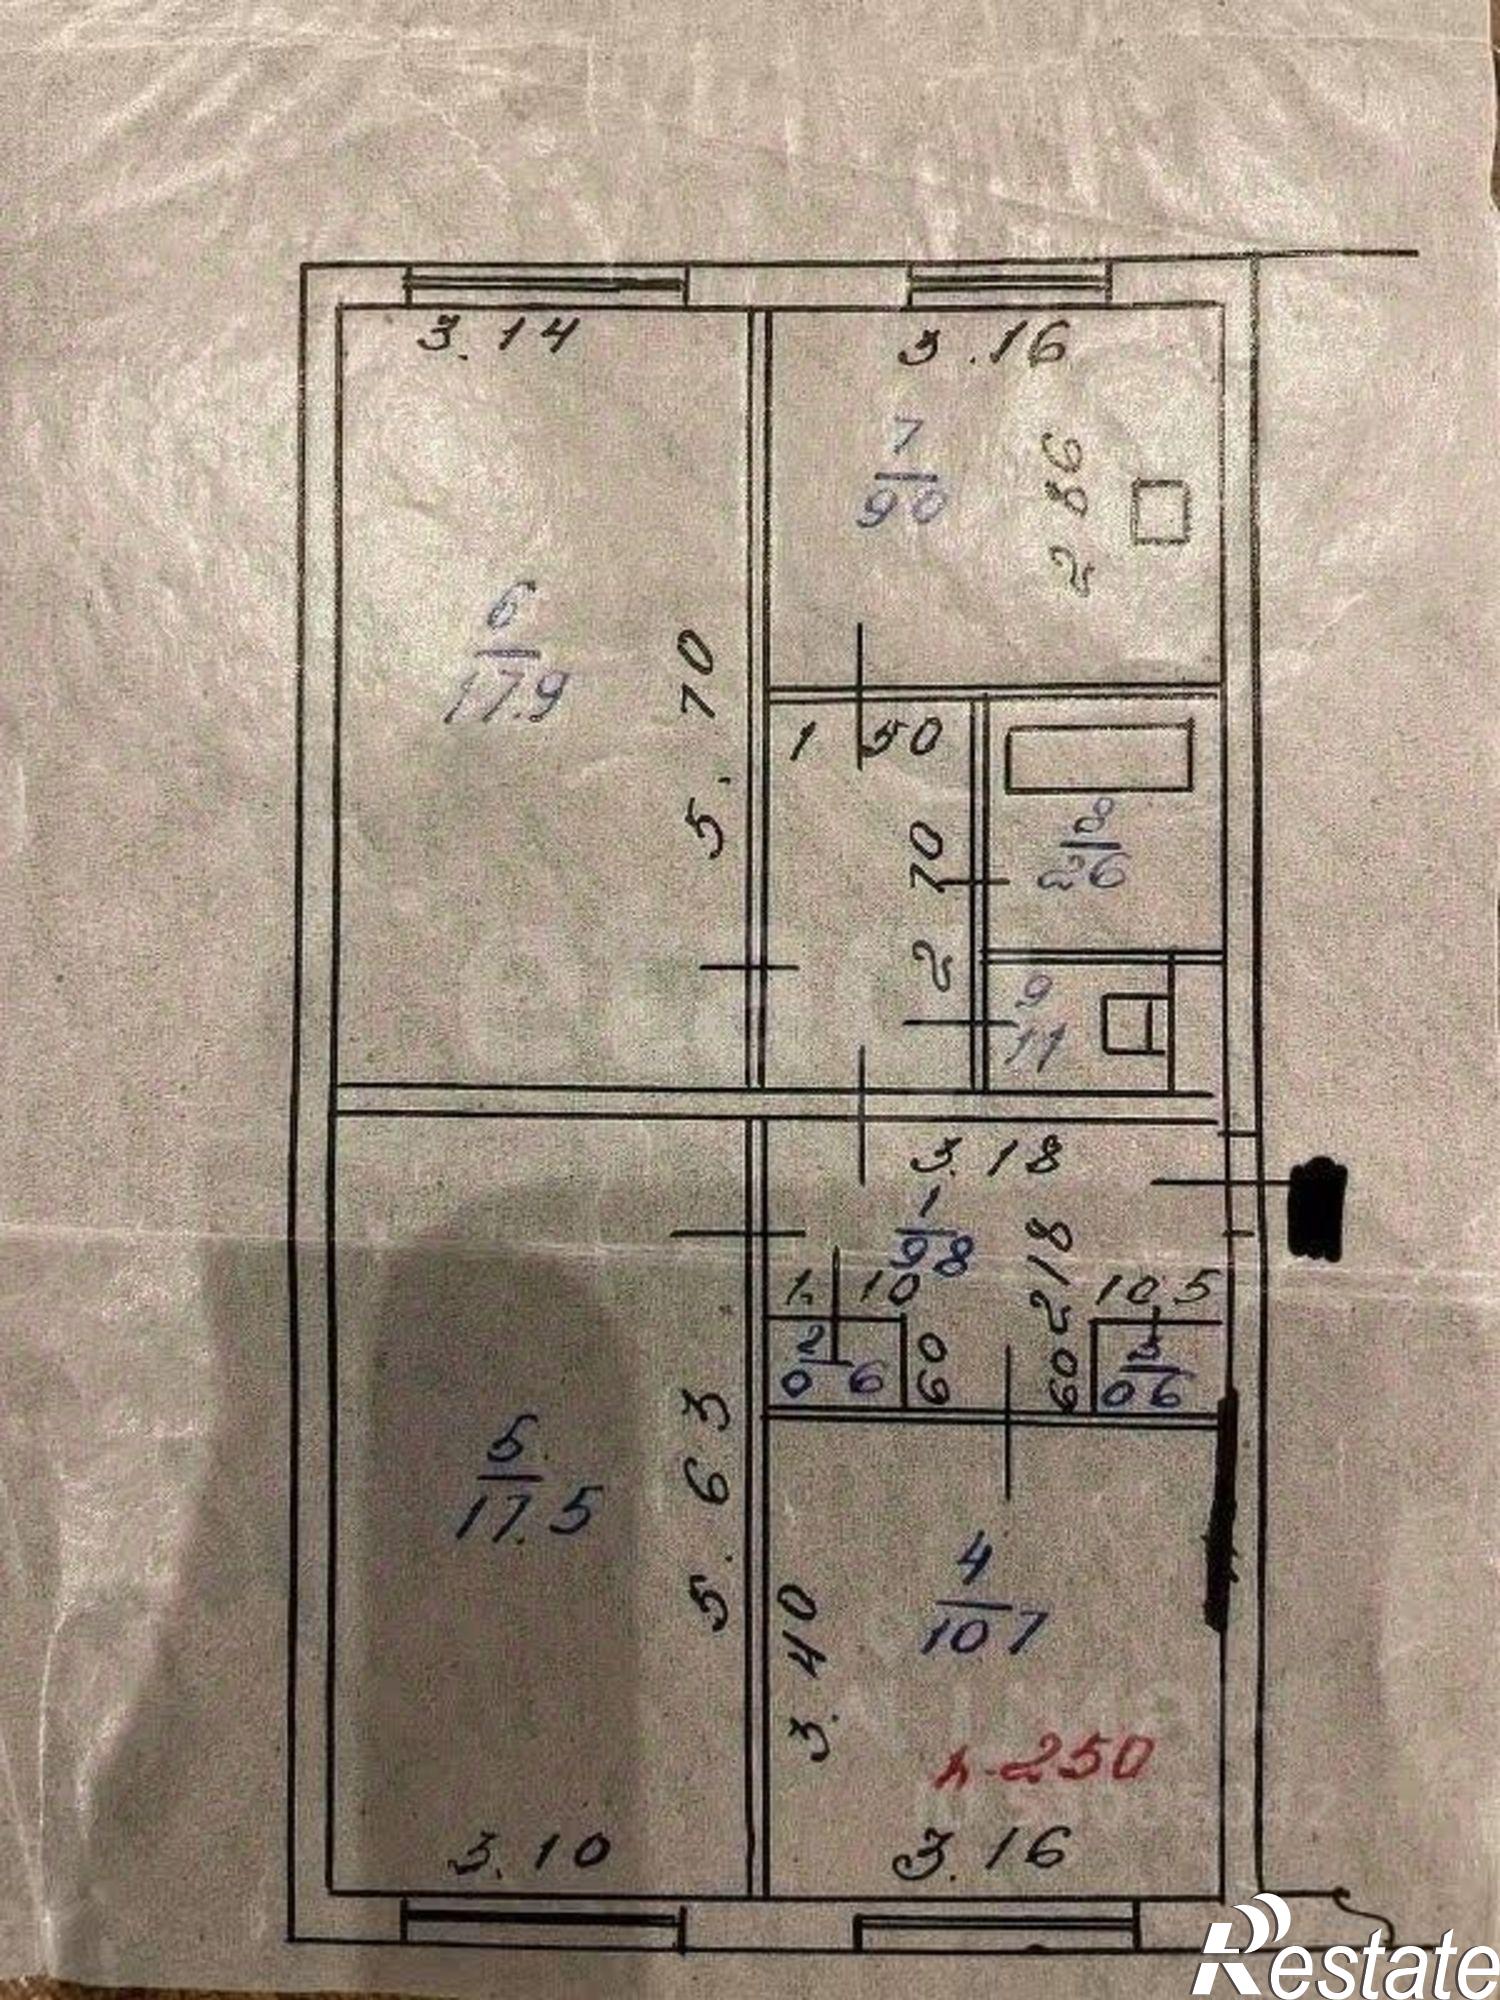 3.14
3.16
7
90
2 86
6
17.9
5.70
1 50
2 70
8
26
9
11
3.18
1
98
2 18
1. 10
10 5
2
0 6
60
60
3
0 6
5
17.5
5.63
4
107
3.40
h-250
3.10
3.16
Restate